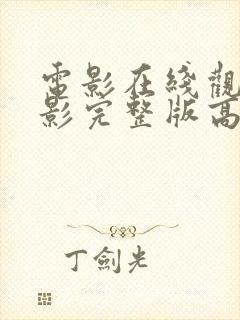 電影在綫觀
影完整版高
丁劍光